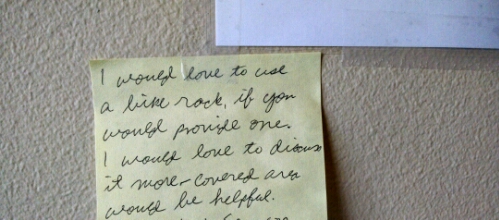 I would love to use
a bike rack, if you
would provide one.
I would love to discuss
it more - covered area
would be helpful.